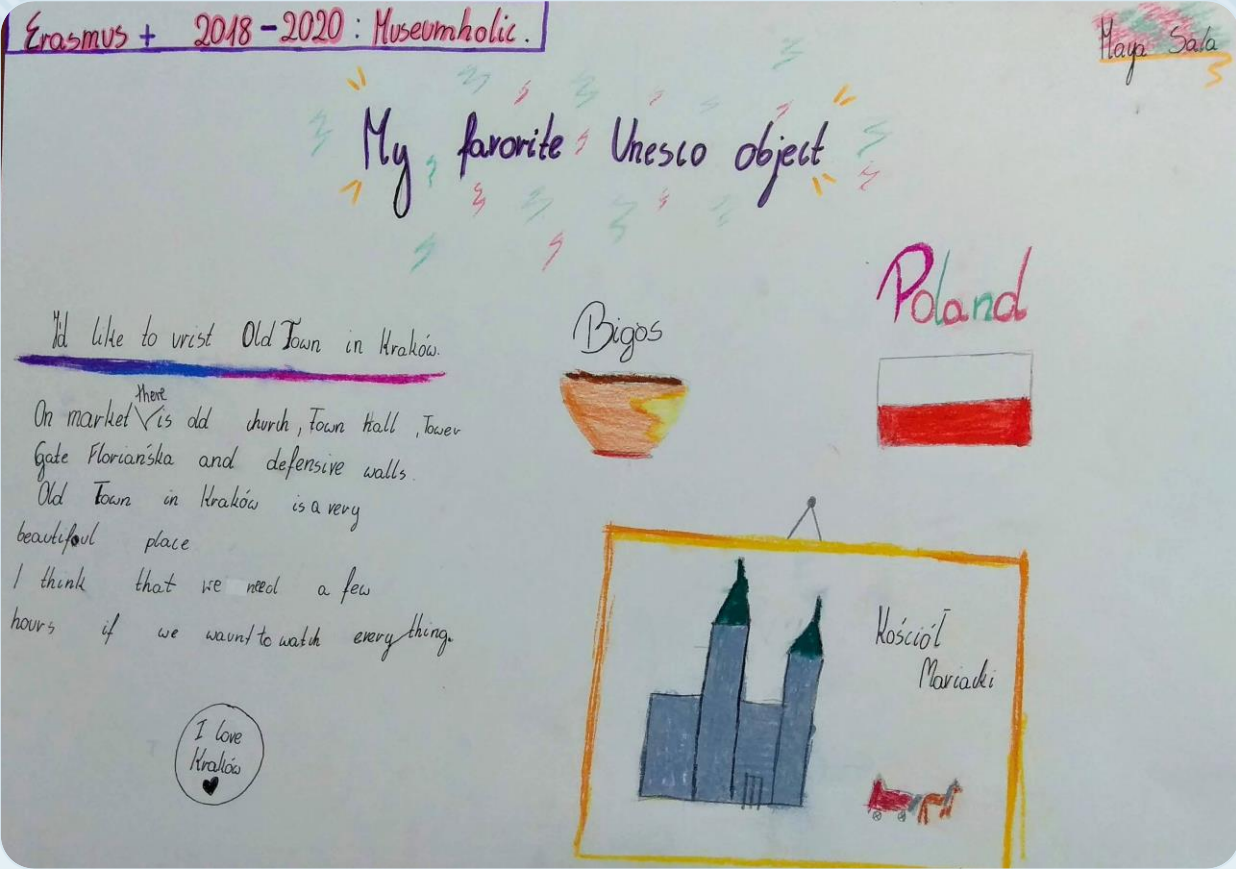 Erasmus + 2018-2020 : Museumholic.
Maya Sala
My favorite Unesco object
I'd like to vrist Old Town in Kraków.
there
On market is old church, Town Hall, Tower
Gate Floriańska and defensive walls.
Old Town in Kraków is a very
beautifoul place
I think that we need a few
hours if we waunt to watch everything.
I love
Kraków
Bigos
Poland
Kościół
Mariacki